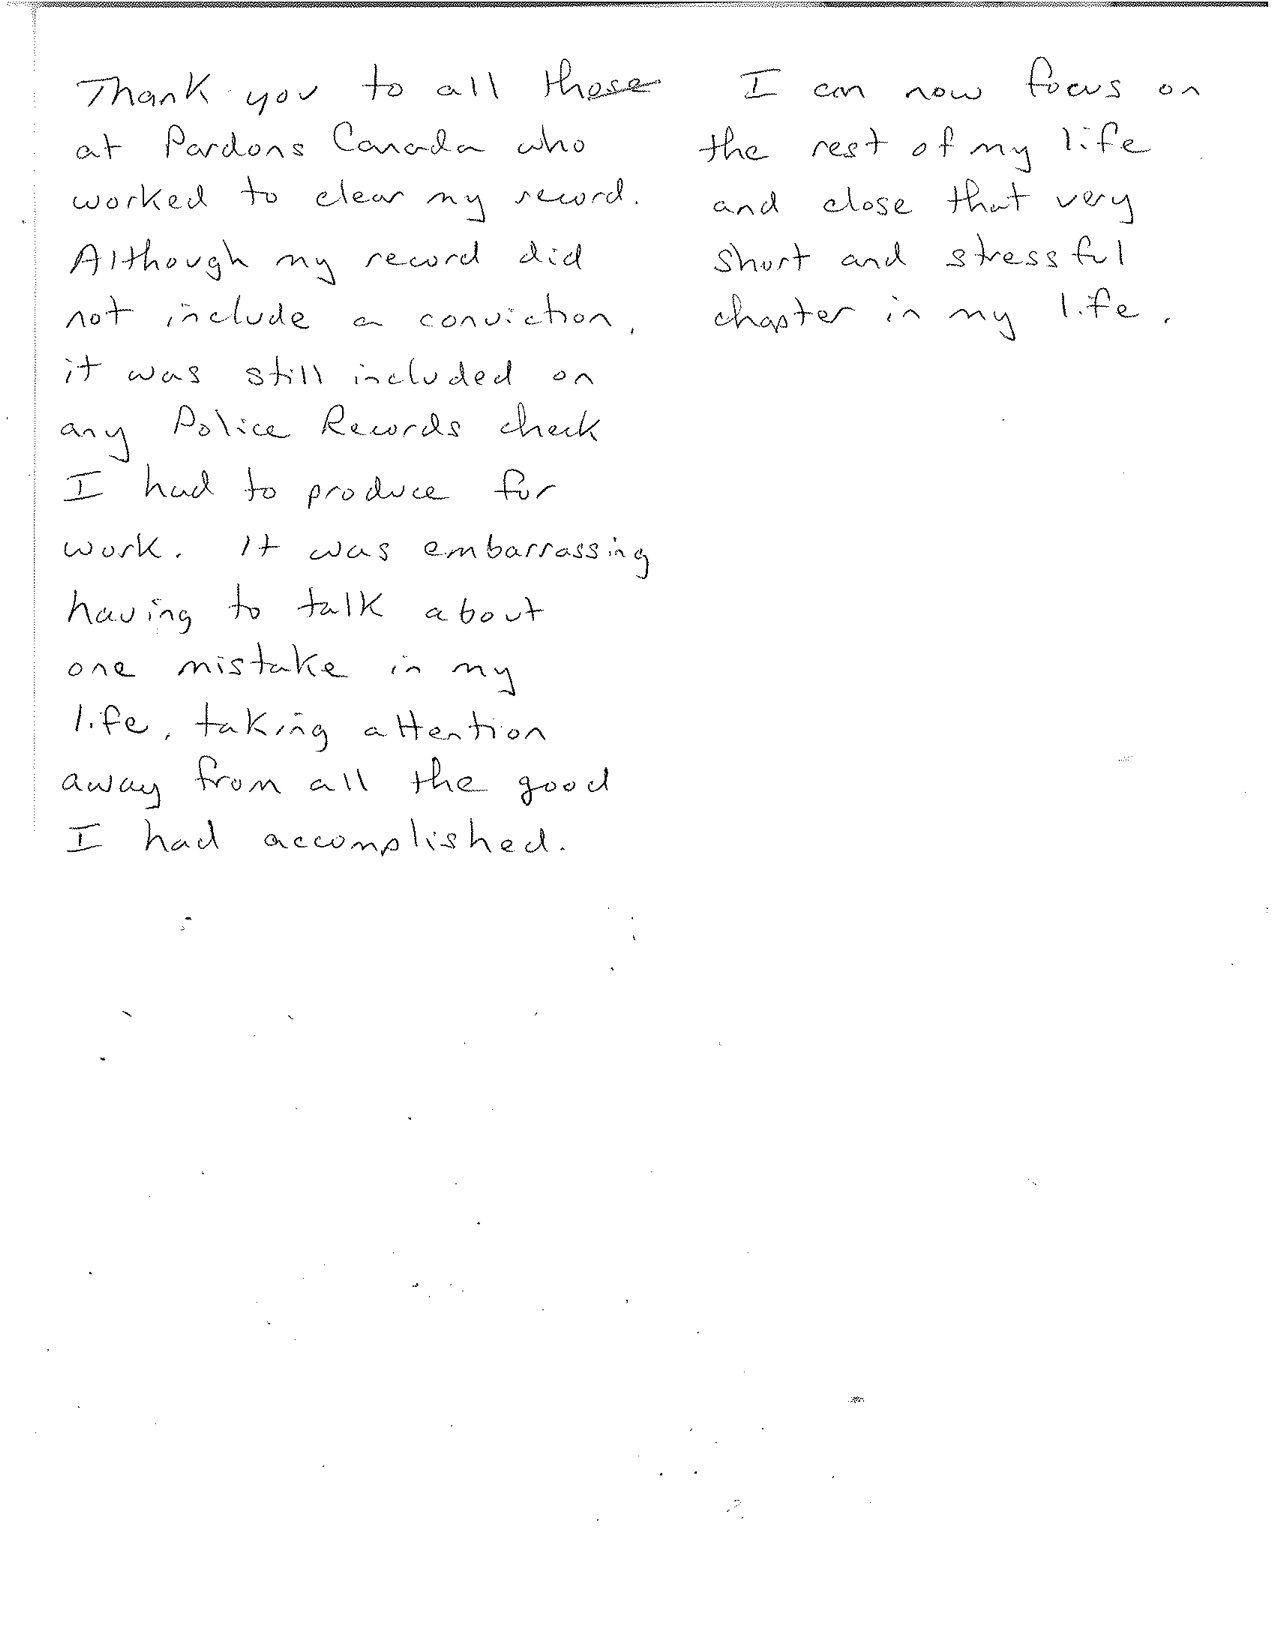 Thank you to all those
at Pardons Canada who
worked to clear my record.
Although my record did
not include a conviction,
it was still included on
any Police Records check
I had to produce for
work. It was embarrassing
having to talk about
one mistake in my
life, taking attention
away from all the good
I had accomplished.
I can now focus on
the rest of my life
and close that very
short and stressful
chapter in my life.